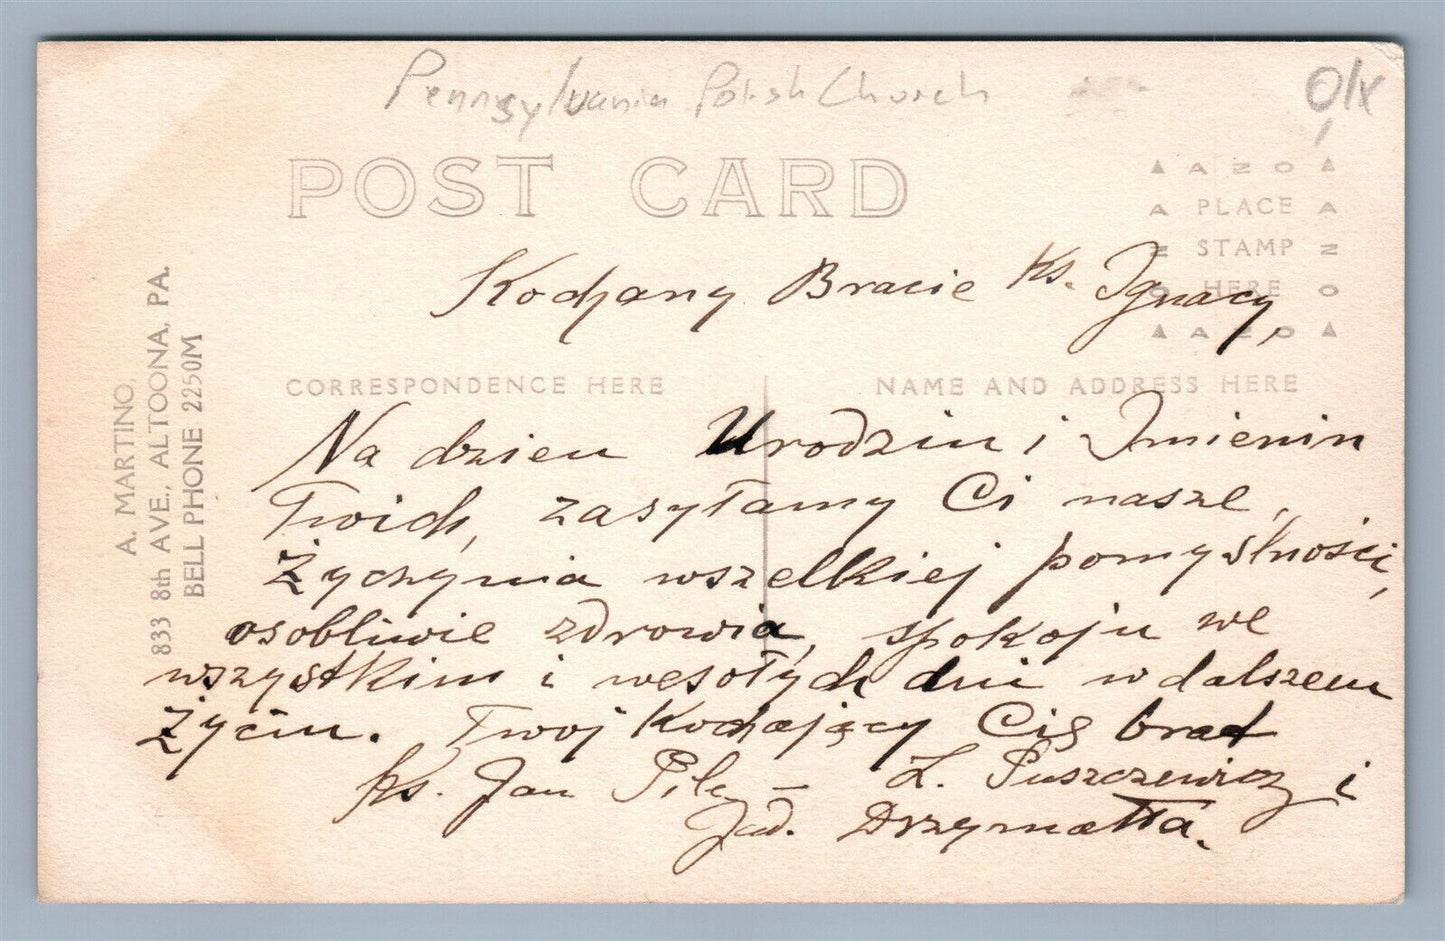 Pennsylvania Polish Church
POST CARD
A Z O
PLACE
STAMP
HERE
A Z O
A. MARTINO,
833 8th AVE., ALTOONA, PA.
BELL PHONE 2250M
Kochany Bracie Ks. Ignacy,
CORRESPONDENCE HERE
NAME AND ADDRESS HERE
Na dzień Urodzin i Imienin
Twich, zasyłamy Ci nasze
Życzynia wszelkiej pomyslności,
osobliwie zdrowia, spokoju we
wszystkim i wesołych dni w dalszem
Życiu. Twoj Kochający Cię brat
Ks. Jan Pila – L. Puszczewicz i
Jad. Drzymałła.